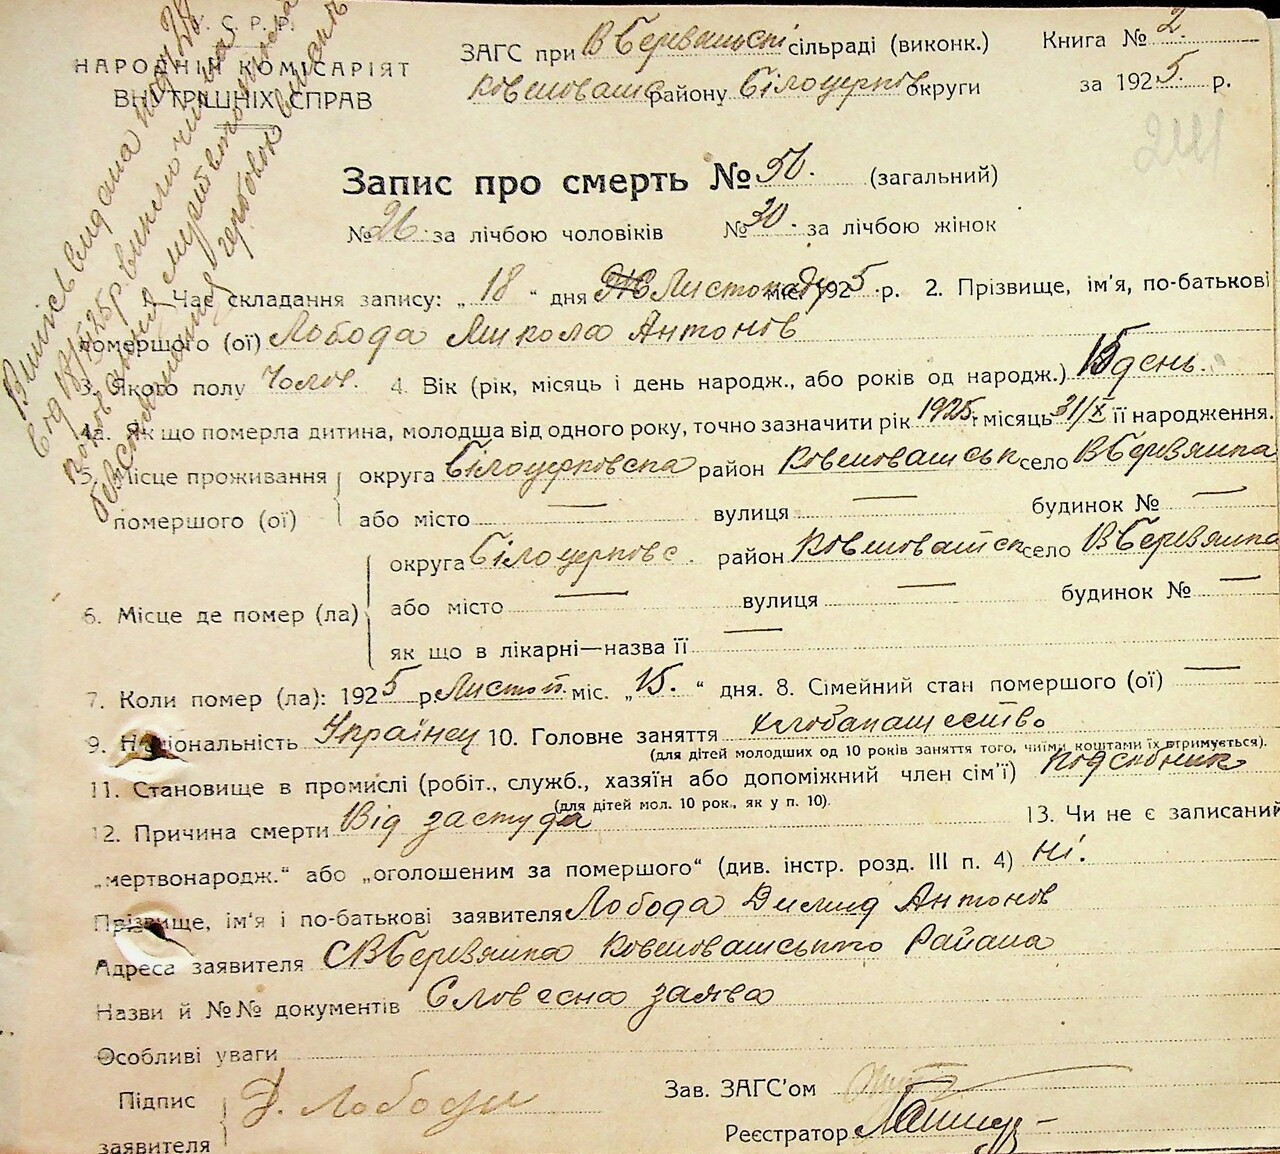 У. С. Р. Р.
НАРОДНІЙ КОМІСАРІЯТ
ВНУТРІШНІХ СПРАВ
ЗАГС при В Березянські сільраді (виконк.)
Ковшовашс району Білоцерков округи
Книга № 2.
за 1925. р.
244
Запис про смерть № 56. (загальний)
№ 26. за лічбою чоловіків № 30. за лічбою жінок
1. Час складання запису: „ 18 “ дня Листопаду міс. 1925 р. 2. Прізвище, ім'я, по-батькові
помершого (ої) Лобода Микола Антонов
3. Якого полу Чолов. 4. Вік (рік, місяць і день народж., або років од народж.) 15 день.
4а. Як що померла дитина, молодша від одного року, точно зазначити рік 1925 і місяць 31/X її народження.
5. Місце проживання помершого (ої) округа Білоцерковска район Ковшовашськ село В Березянка
або місто — вулиця — будинок № —
6. Місце де помер (ла) округа Білоцерковс. район Ковшовашск село В Березянка
або місто — вулиця — будинок № —
як що в лікарні—назва її —
7. Коли помер (ла): 1925 р. Листоп. міс. „ 15. “ дня. 8. Сімейний стан помершого (ої) —
9. Національність Українец 10. Головне заняття хлібапашество
(для дітей молодших од 10 років заняття того, чиїми коштами їх отримується).
11. Становище в промислі (робіт., служб., хазяїн або допоміжний член сім'ї) подсобник
(для дітей мол. 10 рок., як у п. 10).
12. Причина смерти Від застуда 13. Чи не є записаний
„мертвонародж.“ або „оголошеним за помершого“ (див. інстр. розд. III п. 4) ні.
Прізвище, ім'я і по-батькові заявителя Лобода Димид Антонов
Адреса заявителя С В Березянка Ковшовашського Района
Назви й №№ документів Словесна заява
Особливі уваги
Підпис заявителя Д. Лобода
Зав. ЗАГС'ом
Реєстратор